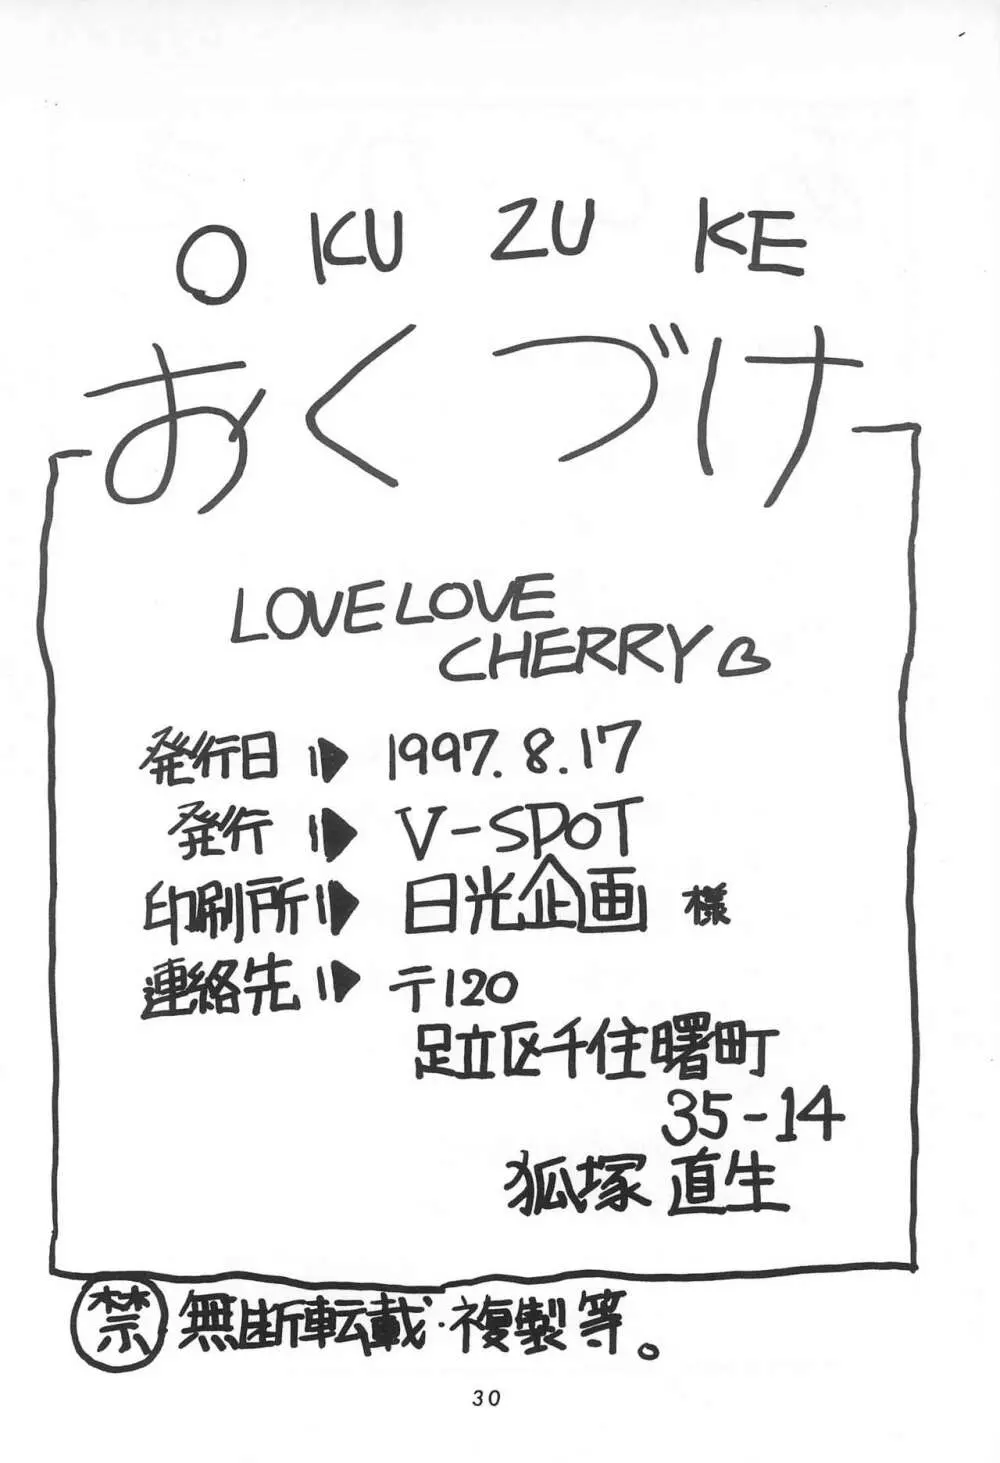 OKUZUKE
おくづけ
LOVELOVE
CHERRY♡
発行日 ▶ 1997.8.17
発行 ▶ V-SPOT
印刷所 ▶ 日光企画 様
連絡先 ▶ 〒120
足立区千住曙町
35-14
狐塚 直生
禁 無断転載・複製等。
30